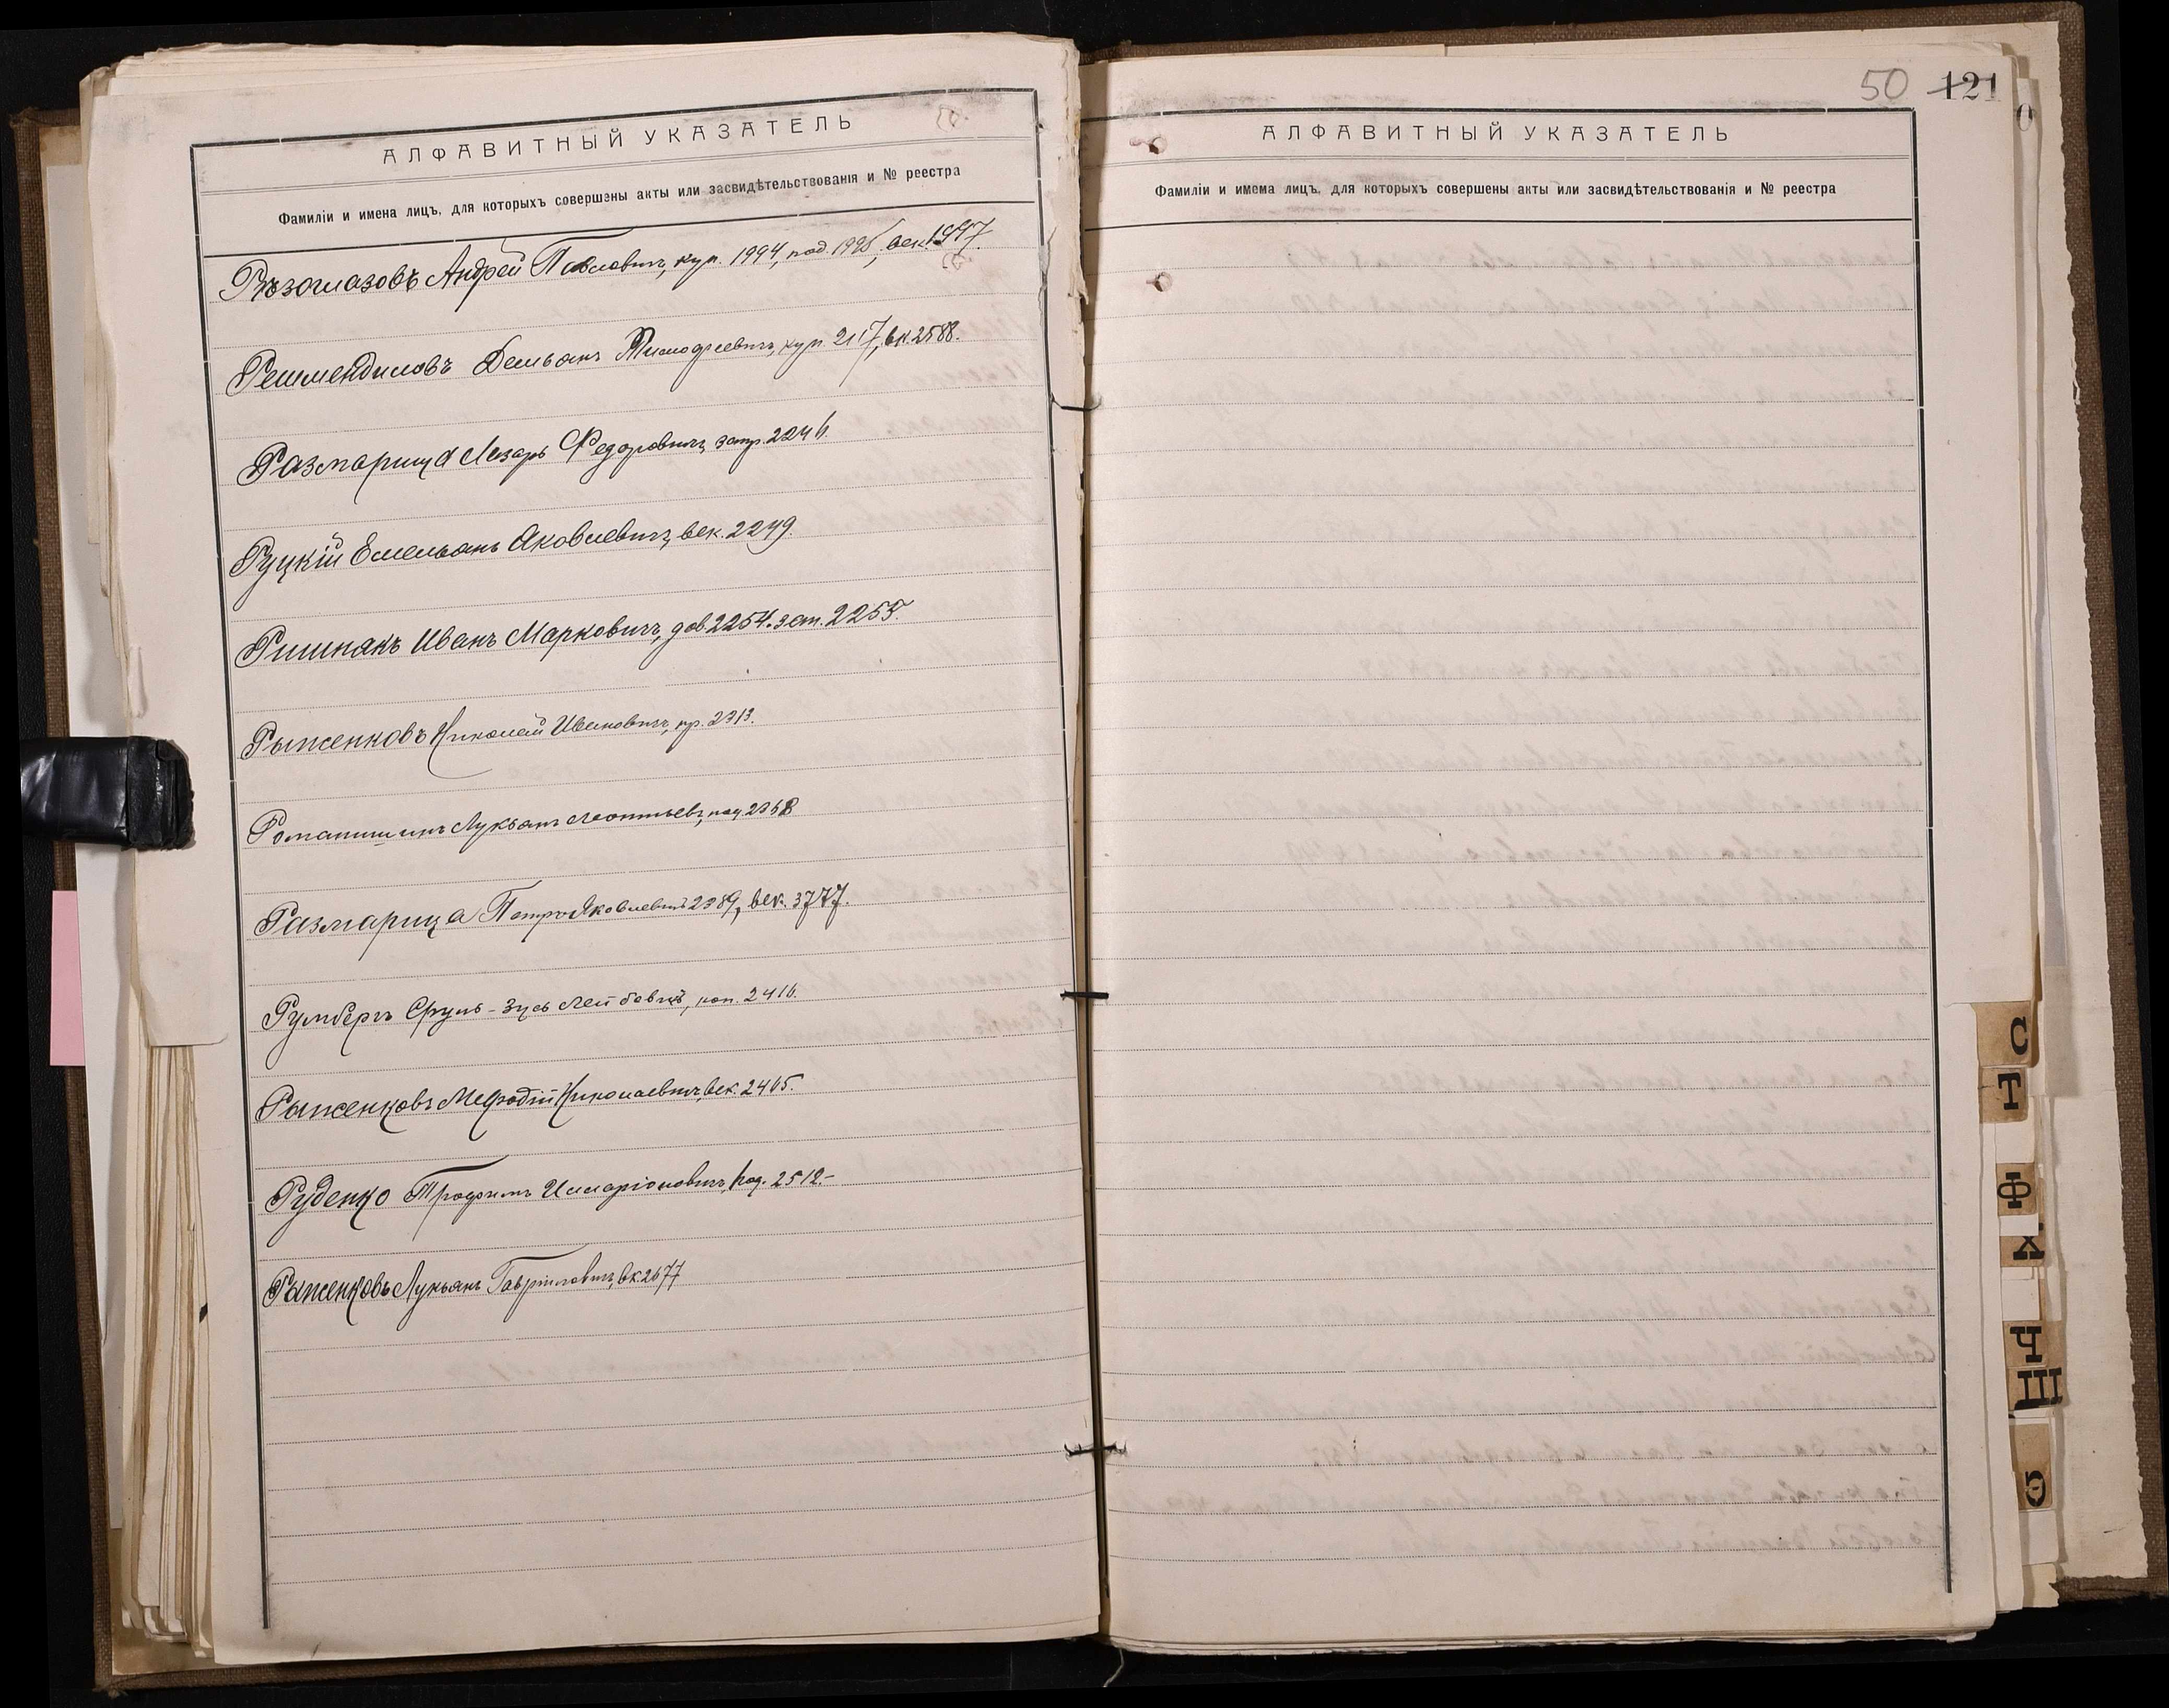 АЛФАВИТНЫЙ УКАЗАТЕЛЬ
Фамиліи и имена лицъ, для которыхъ совершены акты или засвидѣтельствованія и № реестра
Рѣзоглазовъ Андрей Павловичъ, куп. 1994, под. 1995, век. 1997.
Решмендиловъ Демьянъ Тимофеевичъ, куп. 2117, вк. 2588.
Размарица Лазарь Федоровичъ, запр. 2246.
Руцкій Емельянъ Яковлевичъ, век. 2249.
Ришнякъ Иванъ Марковичъ, дов. 2254. зап. 2255.
Рыженковъ Николай Ивановичъ, пр. 2313.
Романишинъ Лукьянъ Леонтьевъ, под. 2368
Размарица Петръ Яковлевичъ 2389, век. 3777.
Румбергъ Сруль-Зусь Лейбовичъ, коп. 2416.
Рыженковъ Мефодій Николаевичъ, век. 2465.
Руденко Трофимъ Илларіоновичъ, под. 2512.-
Рыженковъ Лукьянъ Гавриловичъ, вк. 2677
50 121
АЛФАВИТНЫЙ УКАЗАТЕЛЬ
Фамиліи и имема лицъ, для которыхъ совершены акты или засвидѣтельствованія и № реестра
С
Т
Ф
Х
Ч
Ш
Э